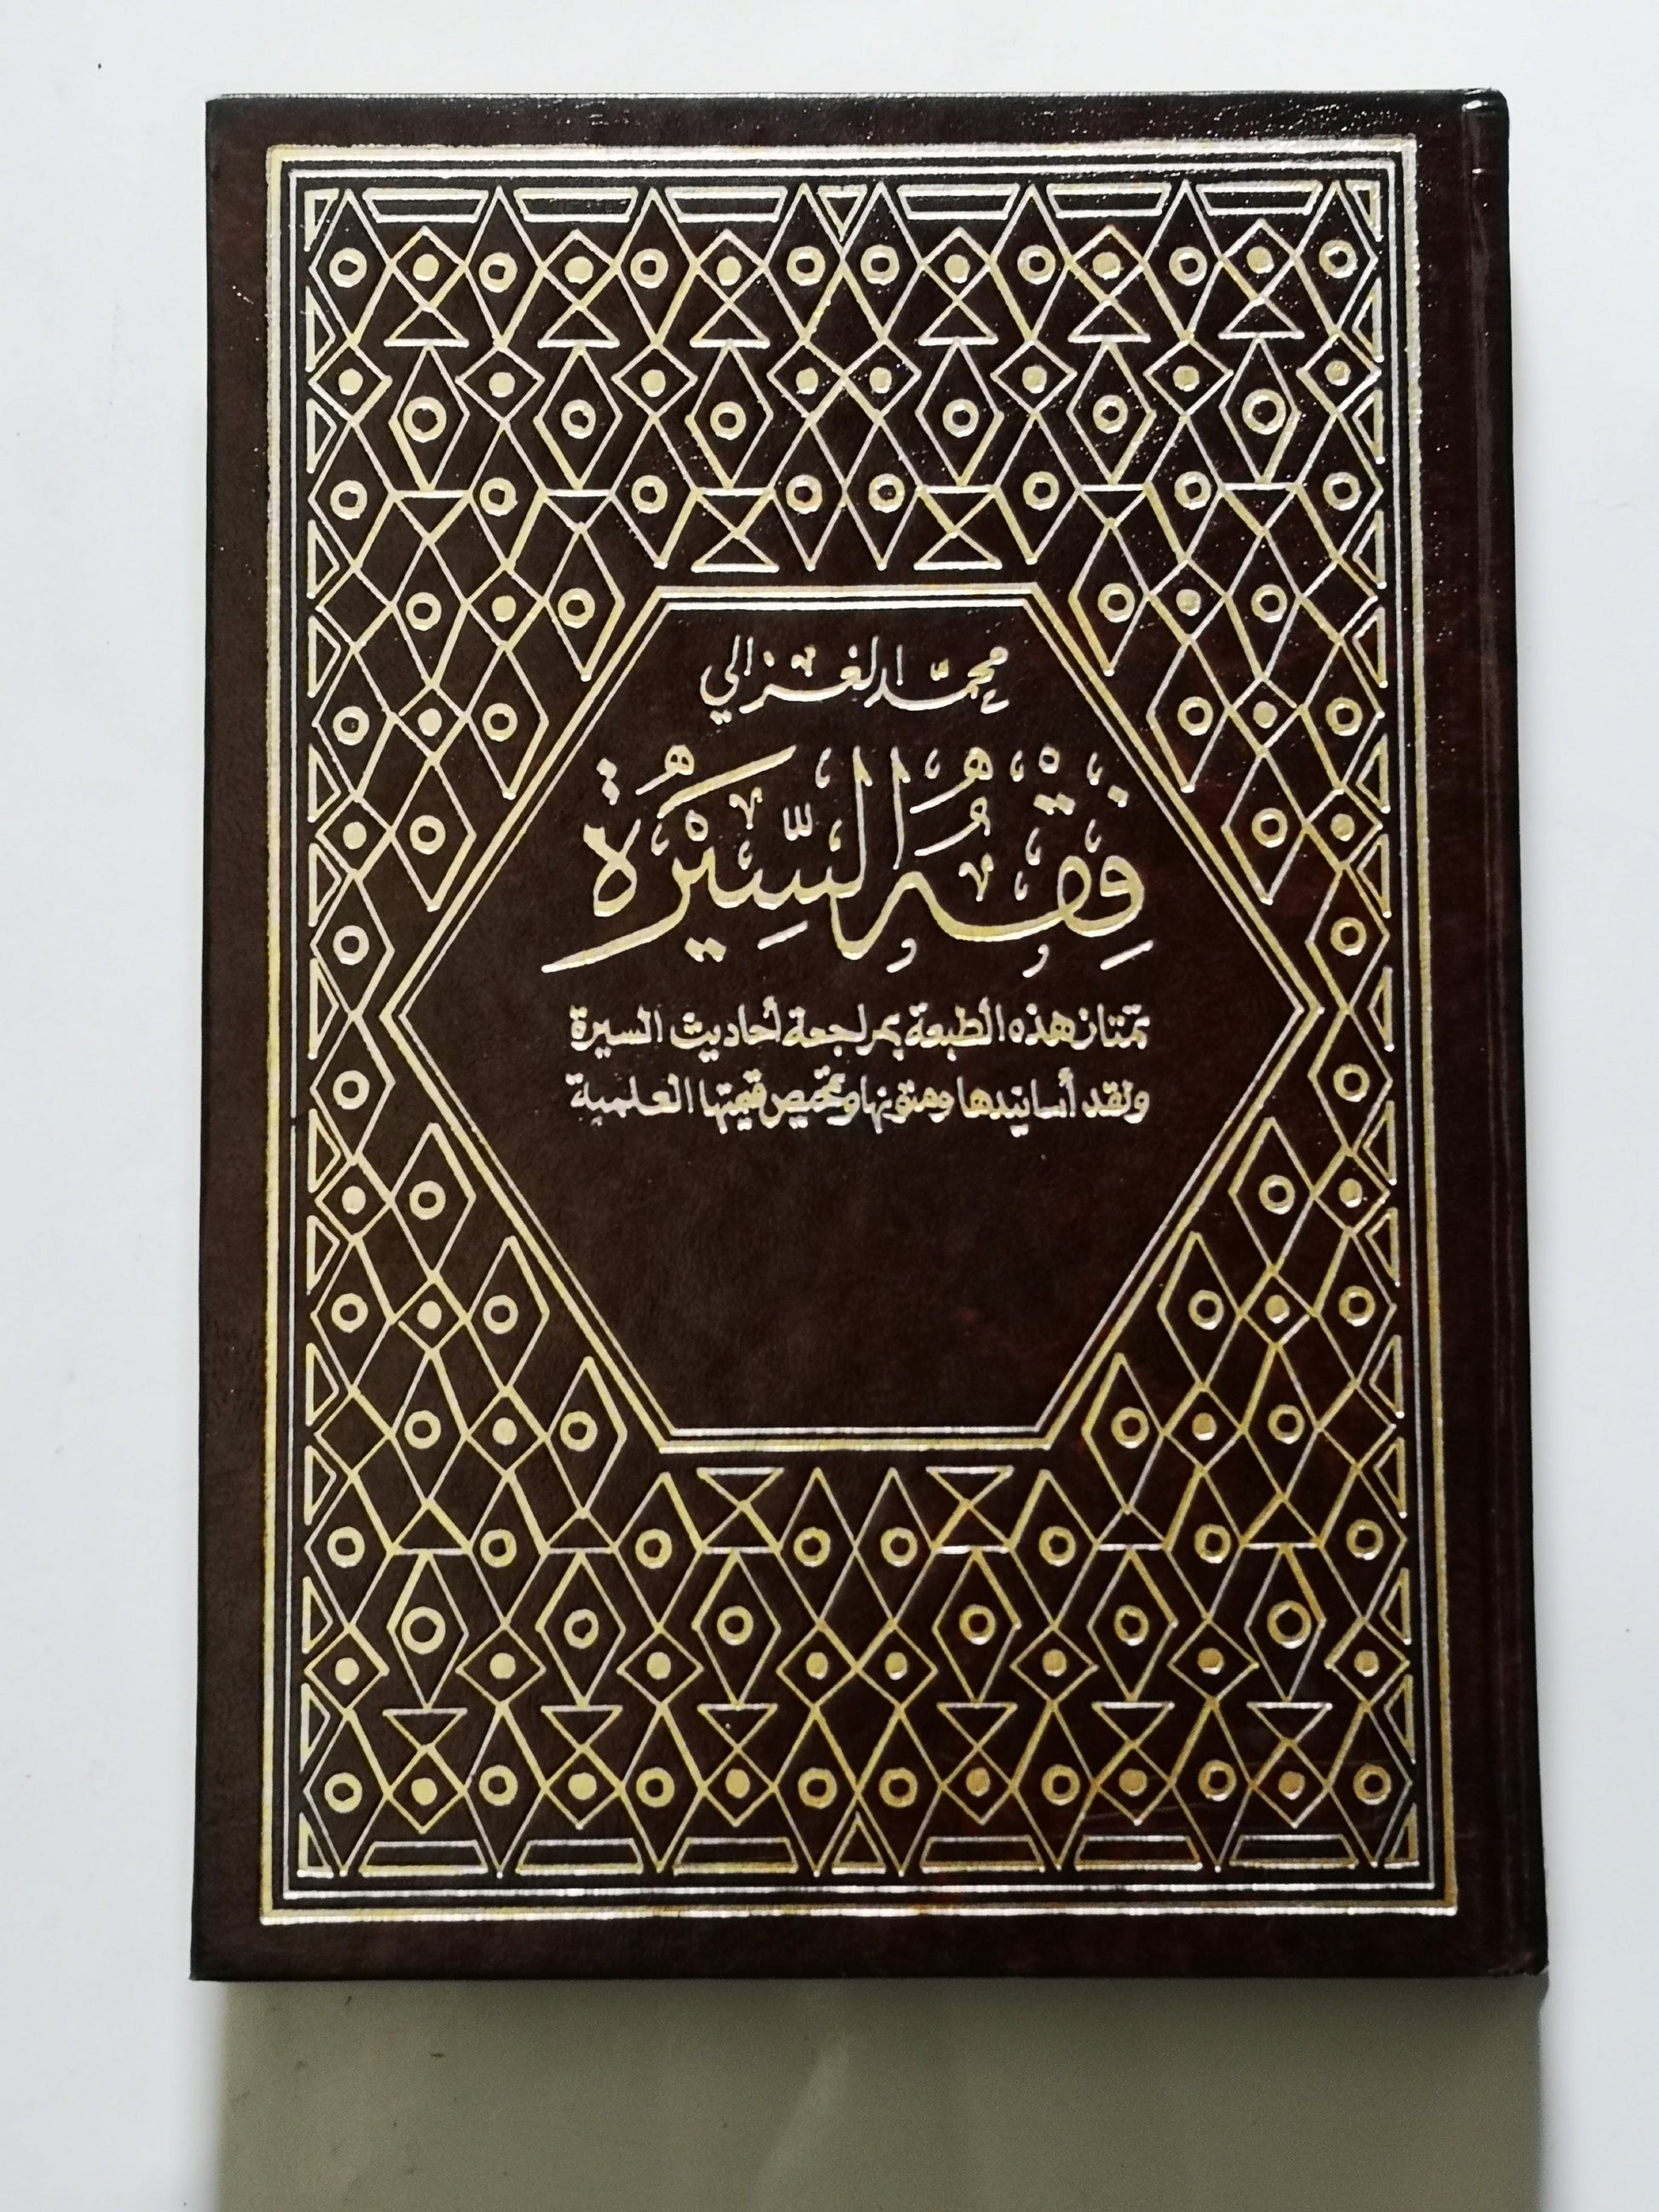 محمد الغزالي
فِقْهُ السِّيْرَة
تمتاز هذه الطبعة بمراجعة أحاديث السيرة
ونقد أسانيدها ومتونها وتمحيص قيمتها العلمية